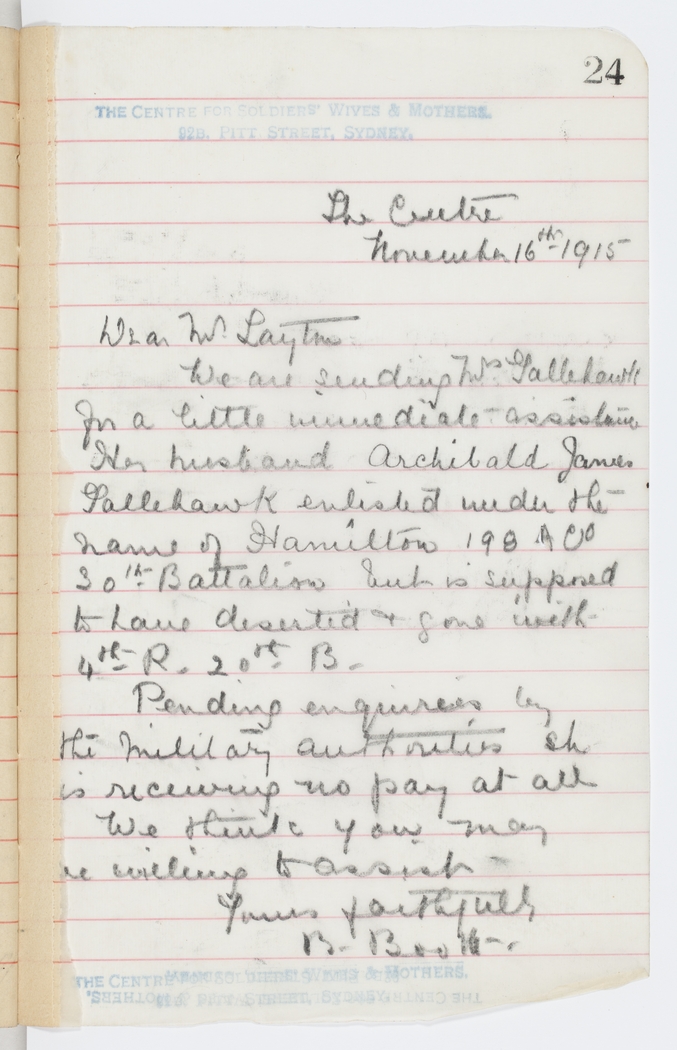 24
THE CENTRE FOR SOLDIERS' WIVES & MOTHERS.
92B. PITT STREET, SYDNEY.
The Centre
November 16th 1915
Dear Mr. Layton
We are sending Mrs Gallehawk
for a little immediate assistance
Her husband Archibald James
Gallehawk enlisted under the
name of Hamilton 198 A Co
30th Battalion but is supposed
to have deserted & gone with
4th R. 20th B.
Pending enquiries by
the military authorities sh
is receiving no pay at all
We think you may
be willing to assist
Yours faithfully
B. Booth.
THE CENTRE FOR SOLDIERS' WIVES & MOTHERS.
PITT STREET, SYDNEY.